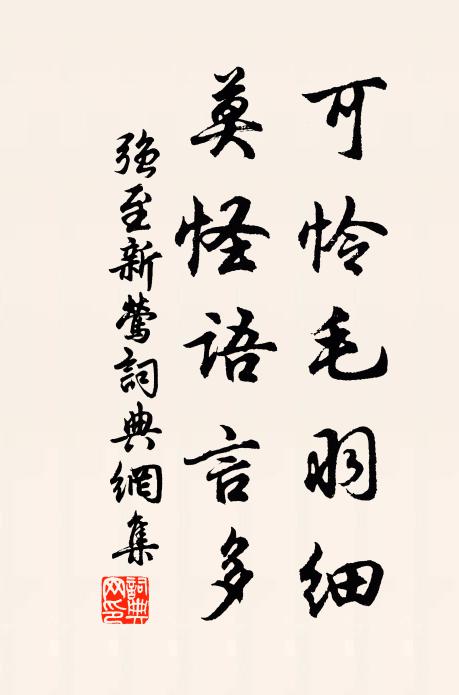 可怜毛羽细
莫怪语言多
强至新莺词典網集
詞典网印